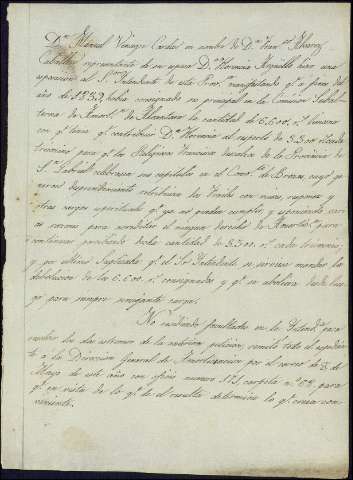 Dn. Manuel Venegas Cordes en nombre de Dn. Franco. Alvarez
Caballero representante de su esposa Da. Florencia Arguello hizo una
esposicion al Sor. Intendente de esta Prova. manifestando qe. a fines del
año de 1839, habia consignado su principal en la Comision Subal-
terna de Amortn. de Alcantara la cantidad de 6.600 rs. vn.
con qe. tenia qe. contribuir Da. Florencia al respecto de 3.300 rs. cada
trienio para qe. los Religiosos Franciscos descalzos de la Provincia de
Sn. Gabriel celebrasen sus capitulos en el Convto. de Brozas, cuyo ge-
neroso desprendimiento celebraban los frailes con misas, responsos y
otras cargas espirituales qe. ya no pueden cumplir, y esponiendo varias
razones para acreditar el ningun derecho de Amortn. para
continuar percibiendo dicha cantidad de 3.300 rs. cada trienio,
y por ultimo suplicaba qe. el Sr. Intendente se sirviese mandar la
debolucion de los 6.600 rs. consignados y qe. se aboliera desde lue-
go para siempre semejante carga.
No residiendo facultades en la Intenda. para
acceder los dos estremos de la anterior peticion, remitió todo el espedien-
te á la Direccion General de Amortizacion por el correo de 8 de
Mayo de este año con oficio numero 171, carpeta n.o 88, para
qe. en vista de lo qe. de él resulta determine lo qe. crea con-
veniente.